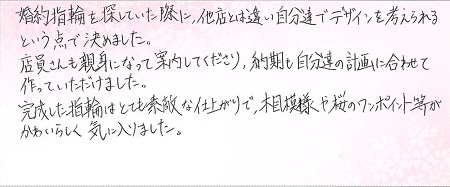 婚約指輪を探していた際に、他店とは違い自分達でデザインを考えられる
という点で決めました。
店員さんも親身になって案内してくださり、納期も自分達の計画に合わせて
作っていただけました。
完成した指輪はとても素敵な仕上がりで、木目模様や桜のワンポイント等が
かわいらしく気に入りました。